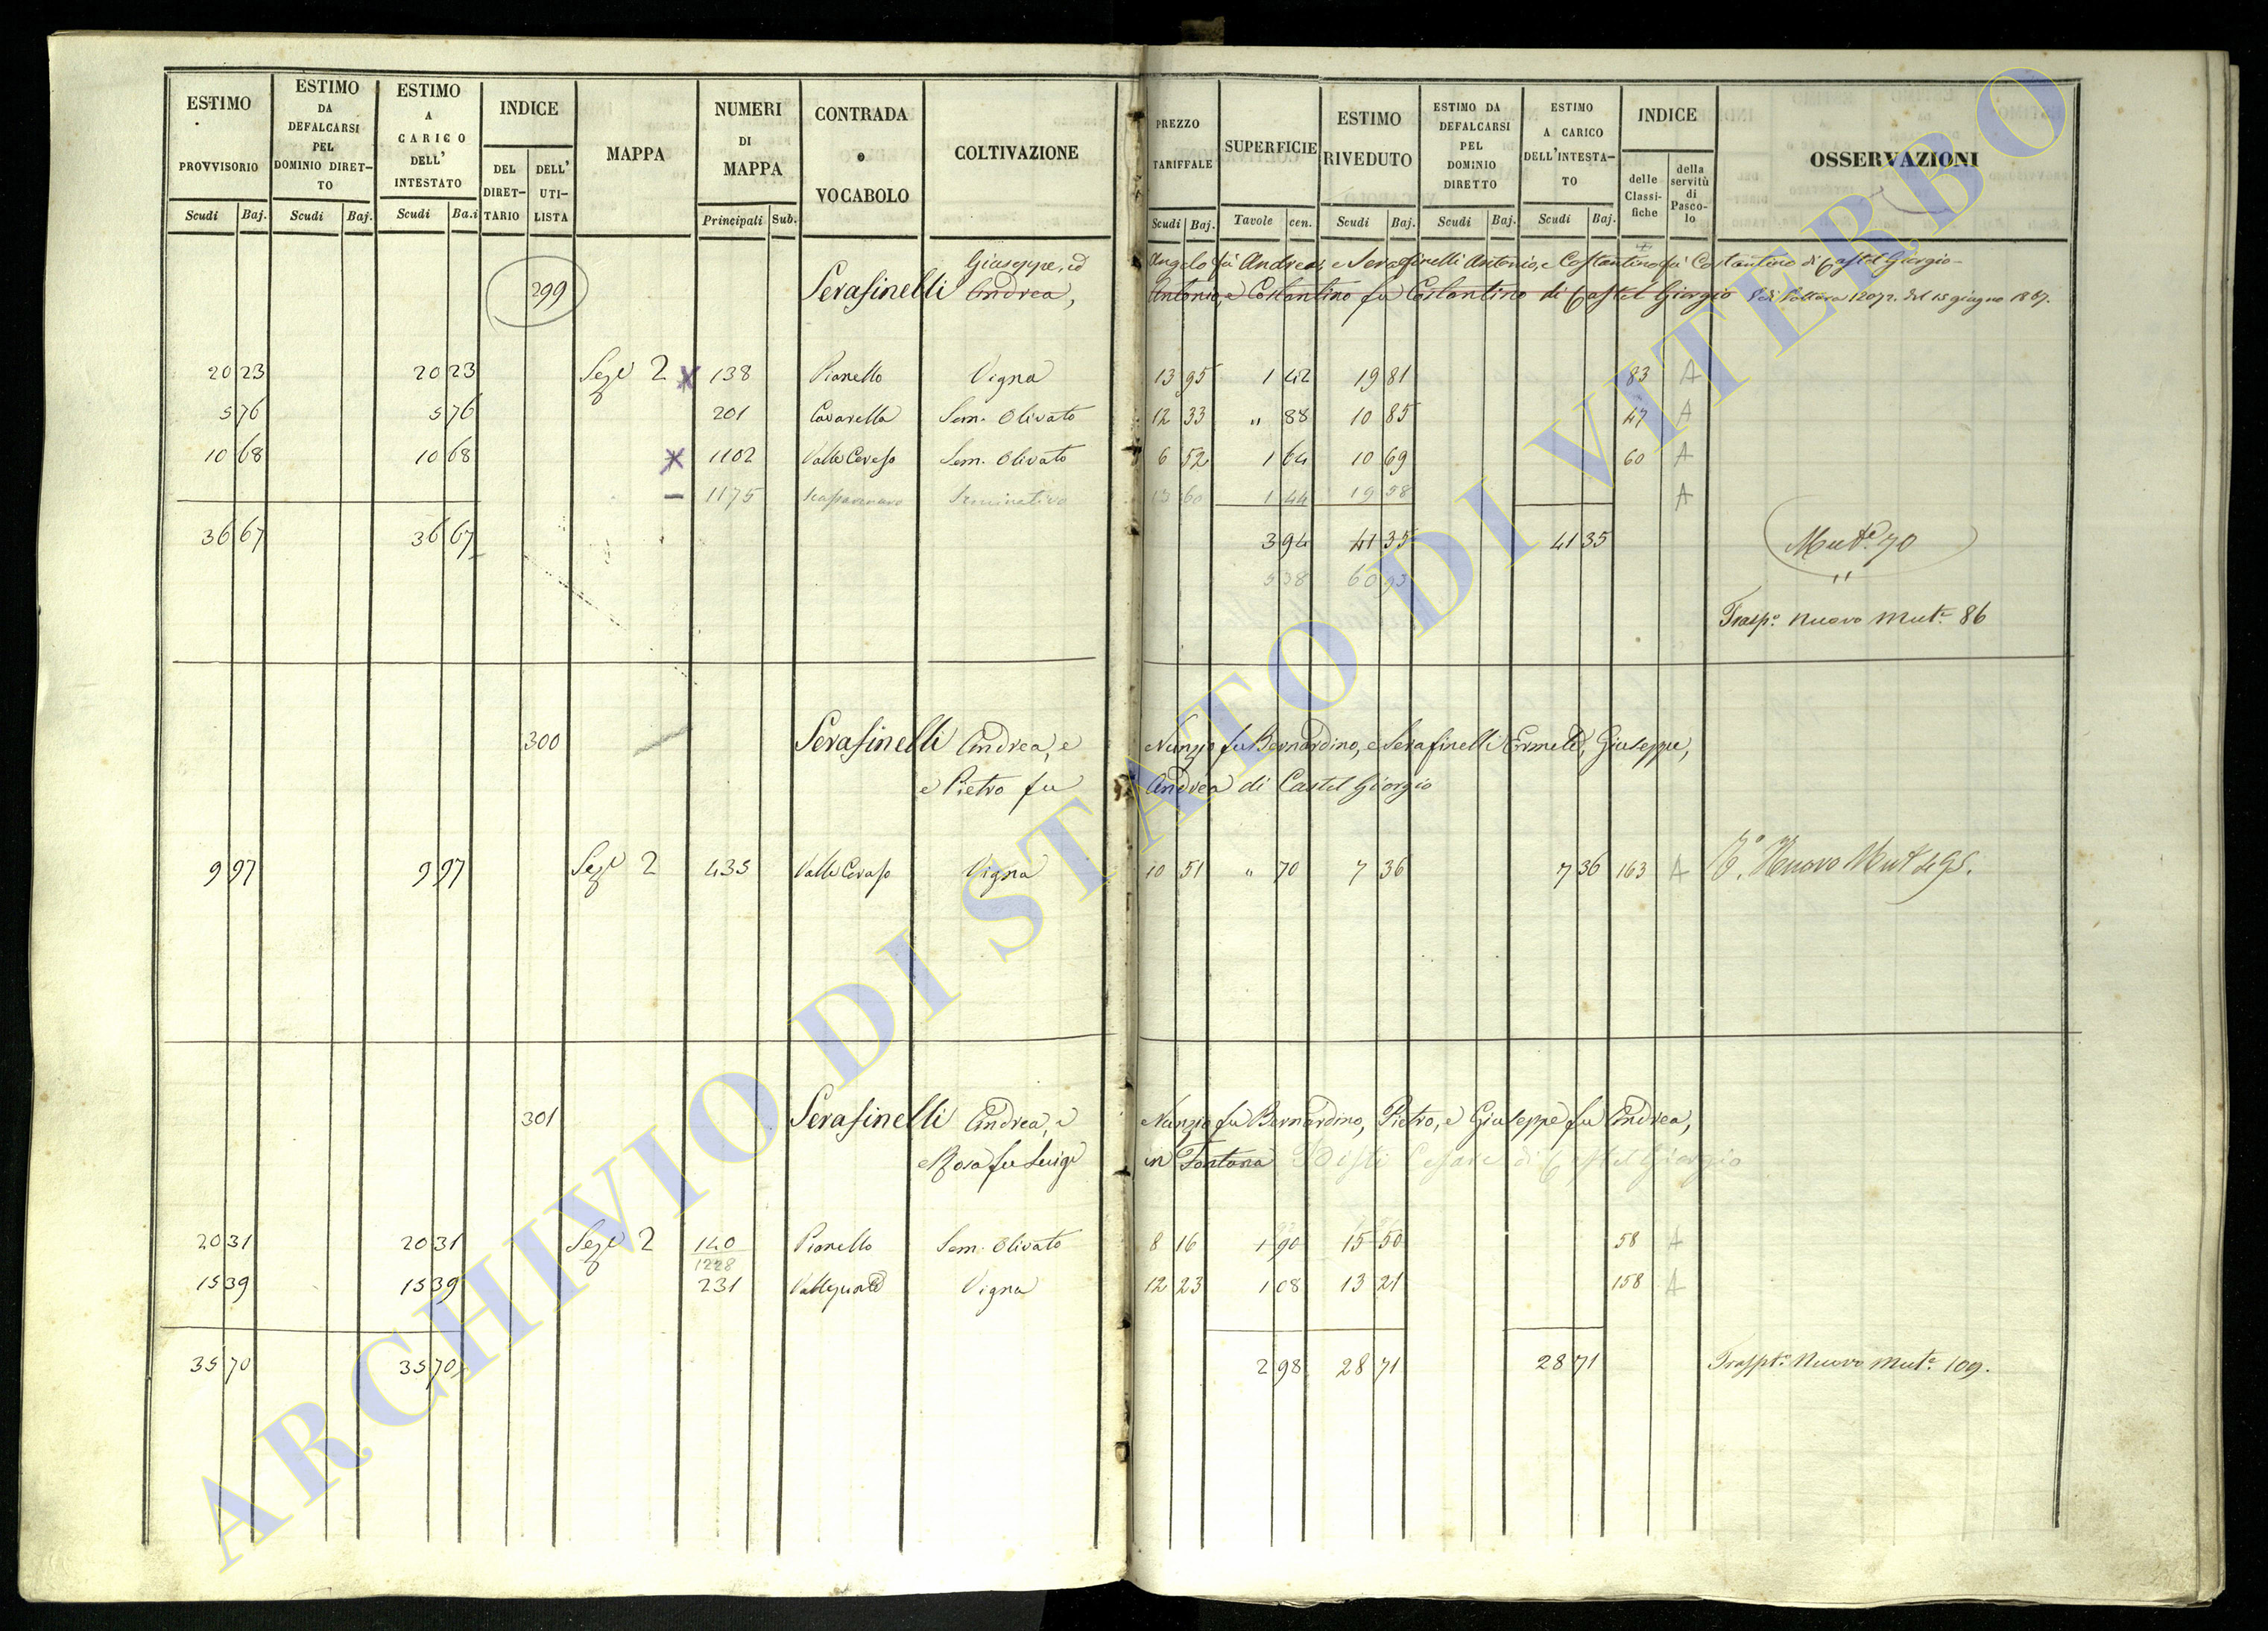 ESTIMO PROVVISORIO Scudi Baj.
ESTIMO DA DEFALCARSI PEL DOMINIO DIRETTO Scudi Baj.
ESTIMO A CARICO DELL' INTESTATO Scudi Ba.i
INDICE DEL DIRET-TARIO DELL' UTI-LISTA
MAPPA
NUMERI DI MAPPA Principali Sub.
CONTRADA o VOCABOLO
COLTIVAZIONE
PREZZO TARIFFALE Scudi Baj.
SUPERFICIE Tavole cen.
ESTIMO RIVEDUTO Scudi Baj.
ESTIMO DA DEFALCARSI PEL DOMINIO DIRETTO Scudi Baj.
ESTIMO A CARICO DELL'INTESTA-TO Scudi Baj.
INDICE delle Classi-fiche della servitù di Pasco-lo
OSSERVAZIONI
Giuseppe, ed Angelo fù Andrea, e Serafinelli Antonio, e Costantino fù Costantino di Castel Giorgio
299 Serafinelli Andrea, Antonio, e Costantino fu Costantino di Castel Giorgio Vedi Voltura 12072. del 15 giugno 1867.
20 23 20 23 Sez.e 2 138 Pianello Vigna 13 95 1 42 19 81 83 A
5 76 5 76 201 Cavarella Sem. Olivato 12 33 " 88 10 85 47 A
10 68 10 68 1102 Valle Ceraso Sem. Olivato 6 52 1 64 10 69 60 A
1175 Seminativo 13 60 1 44 19 58 A
36 67 36 67 3 94 41 35 41 35 Mut.e 70
5 38 60 93
Trasp.o Nuovo Mut.e 86
300 Serafinelli Andrea, e Nunzio fu Bernardino, e Serafinelli Ermete, Giuseppe,
e Pietro fu Andrea di Castel Giorgio
9 97 9 97 Sez.e 2 435 Valle Ceraso Vigna 10 51 " 70 7 36 7 36 163 A T.o Nuovo Mut.
301 Serafinelli Andrea, e Nunzio fu Bernardino, Pietro, e Giuseppe fu Andrea,
e Rosa fu Luigi in Fontana Bisti Cesare di Castel Giorgio
20 31 20 31 Sez.e 2 140 Pianello Sem. Olivato 8 16 1 90 15 50 58 A
1228
15 39 15 39 231 Vigna 12 23 1 08 13 21 158 A
35 70 35 70 2 98 28 71 28 71 Traspt.o Nuovo Mut.e 109.
ARCHIVIO DI STATO DI VITERBO